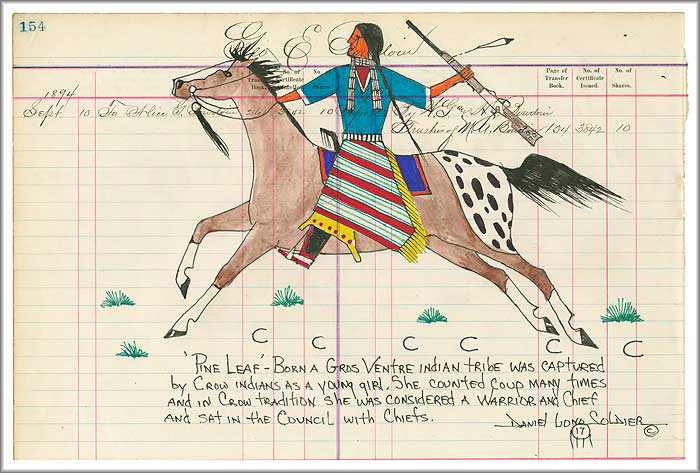 154
Geo E Bowdoin
Page of Transfer Book. No. of Certificate Issued. No. of Shares.
1894
Sept 10 To Alice G. Bowdoin 10 By
104 3842 10
C C C C C C
'PINE LEAF' - BORN A GROS VENTRE INDIAN TRIBE WAS CAPTURED
by CROW INDIANS AS A YOUNG GIRL. SHE COUNTED COUP MANY TIMES
AND IN CROW TRADITION SHE WAS CONSIDERED A WARRIOR AND CHIEF
AND SAT IN THE COUNCIL WITH CHIEFS. DANIEL LONG SOLDIER ©
17